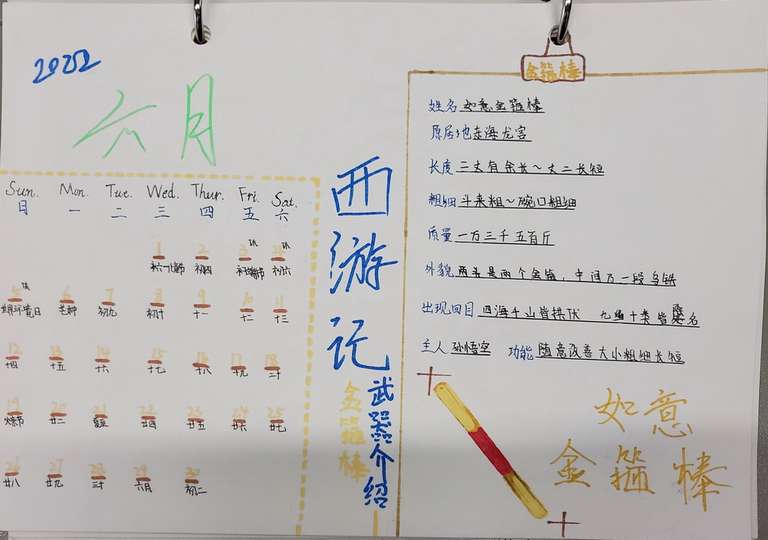 2022
六月
Sun. Mon. Tue. Wed. Thur. Fri. Sat.
日 一 二 三 四 五 六
1 2 3 休 4 休
初四 初六
5 休 6 7 8 9 10 11
初九 初十 十一 十二 十三
12 13 14 15 16 17 18
十四 十五 十六 十七 十八 十九 二十
19 20 21 22 23 24 25
父亲节 廿二 夏至 廿四 廿五 廿六 廿七
26 27 28 29 30
廿八 廿九 三十 六月 初二
西游记
武器介绍
金箍棒
金箍棒
姓名 如意金箍棒
原居地 东海龙宫
长度 二丈有余长~丈二长短
粗细 斗来粗~碗口粗细
质量 一万三千五百斤
外貌 两头是两个金箍,中间乃一段乌铁
出现回目 四海千山皆拱伏 九幽十类尽除名
主人 孙悟空 功能 随意改善大小粗细长短
如意
金箍棒